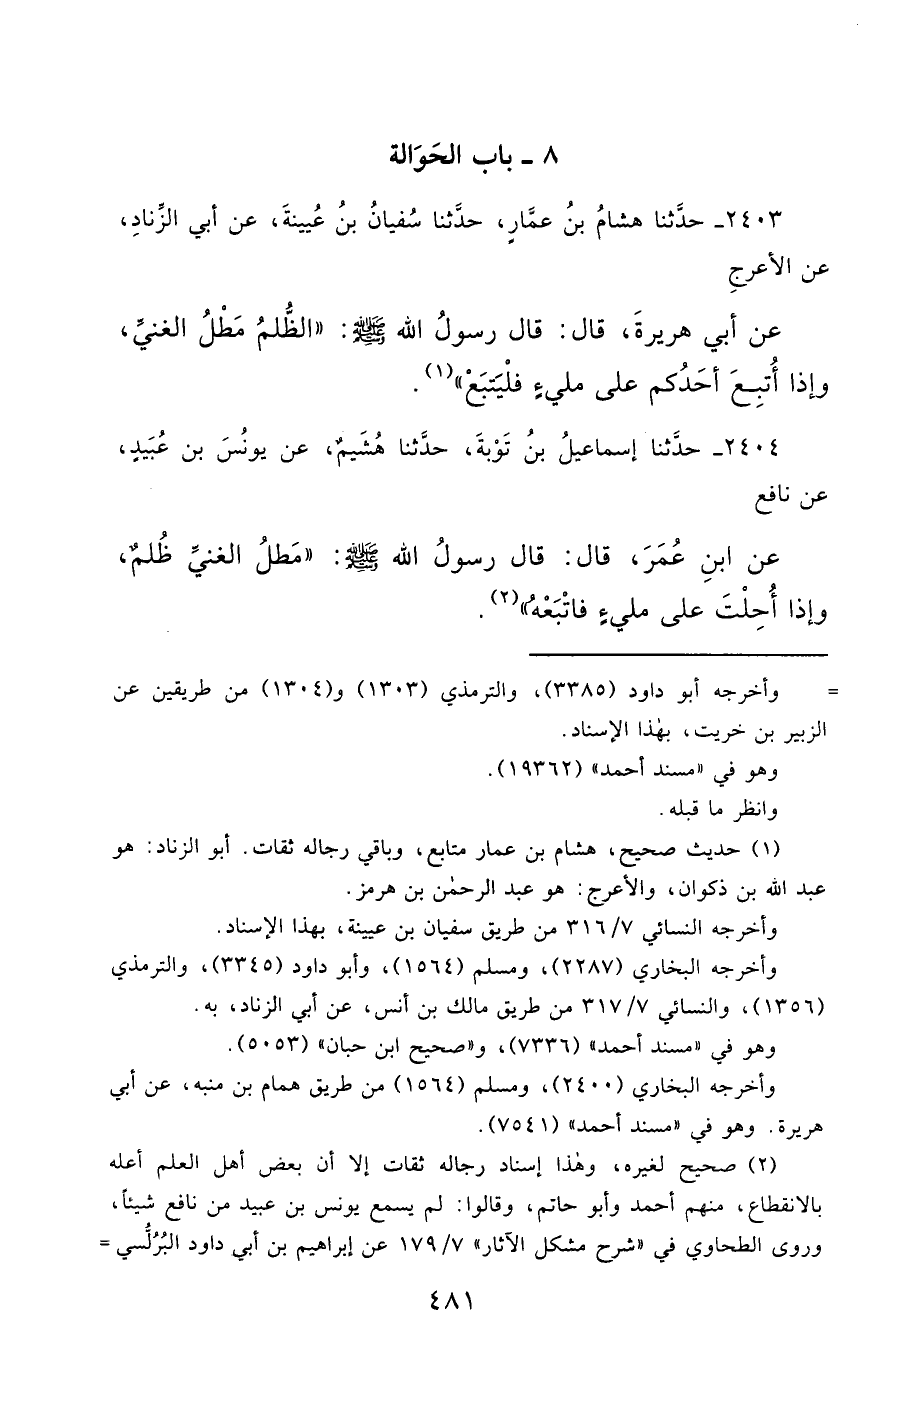 ٨ ـ باب الحَوَالة
٢٤٠٣ـ حدَّثنا هشامُ بنُ عمَّارٍ، حدَّثنا سُفيانُ بنُ عُيينةَ، عن أبي الزِّنادِ،
عن الأعرجِ
عن أبي هريرةَ، قال: قال رسولُ الله ﷺ: «الظُّلمُ مَطْلُ الغنيِّ،
وإذا أُتبِعَ أحَدُكم على مليءٍ فلْيَتبَعْ»(١).
٢٤٠٤ـ حدَّثنا إسماعيلُ بنُ تَوْبةَ، حدَّثنا هُشَيمٌ، عن يونُسَ بن عُبَيدٍ،
عن نافع
عن ابنِ عُمَرَ، قال: قال رسولُ الله ﷺ: «مَطلُ الغنيِّ ظُلمٌ،
وإذا أُحِلْتَ على مليءٍ فاتْبَعْهُ»(٢).
= وأخرجه أبو داود (٣٣٨٥)، والترمذي (١٣٠٣) و(١٣٠٤) من طريقين عن
الزبير بن خريت، بهٰذا الإسناد.
وهو في «مسند أحمد» (١٩٣٦٢).
وانظر ما قبله.
(١) حديث صحيح، هشام بن عمار متابع، وباقي رجاله ثقات. أبو الزناد: هو
عبد الله بن ذكوان، والأعرج: هو عبد الرحمٰن بن هرمز.
وأخرجه النسائي ٣١٦/٧ من طريق سفيان بن عيينة، بهذا الإسناد.
وأخرجه البخاري (٢٢٨٧)، ومسلم (١٥٦٤)، وأبو داود (٣٣٤٥)، والترمذي
(١٣٥٦)، والنسائي ٣١٧/٧ من طريق مالك بن أنس، عن أبي الزناد، به.
وهو في «مسند أحمد» (٧٣٣٦)، و«صحيح ابن حبان» (٥٠٥٣).
وأخرجه البخاري (٢٤٠٠)، ومسلم (١٥٦٤) من طريق همام بن منبه، عن أبي
هريرة. وهو في «مسند أحمد» (٧٥٤١).
(٢) صحيح لغيره، وهٰذا إسناد رجاله ثقات إلا أن بعض أهل العلم أعله
بالانقطاع، منهم أحمد وأبو حاتم، وقالوا: لم يسمع يونس بن عبيد من نافع شيئاً،
وروى الطحاوي في «شرح مشكل الآثار» ١٧٩/٧ عن إبراهيم بن أبي داود البُرُلُّسي =
٤٨١